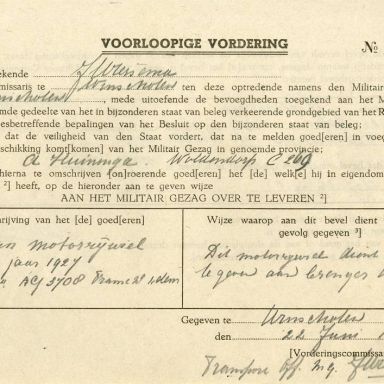 VOORLOOPIGE VORDERING
No
ekende J Wiersema
missaris te Winschoten ten deze optredende namens den Militair
nschoten, mede uitoefende de bevoegdheden toegekend aan het M
emde gedeelte van het in bijzonderen staat van beleg verkeerende grondgebied van het R
esbetreffende bepalingen van het Besluit op den bijzonderen staat van beleg;
dat de veiligheid van den Staat vordert, dat na te melden goed[eren] in voeg
schikking komt[komen] van het Militair Gezag in genoemde provincie;
Woldendorp C 269
hierna te omschrijven [on]roerende goed[eren] het [de] welk[e] hij in eigendom
²] heeft, op de hieronder aan te geven wijze
AAN HET MILITAIR GEZAG OVER TE LEVEREN ²]
hrijving van het [de] goed[eren]
Wijze waarop aan dit bevel dient
gevolg gegeven ³]
en motorrijwiel
jaar 1927
Dit motorrijwiel dient
te geven aan brenger
Gegeven te Winschoten
22 Juni
[Vorderingscommissa
Transport Off. M.G.